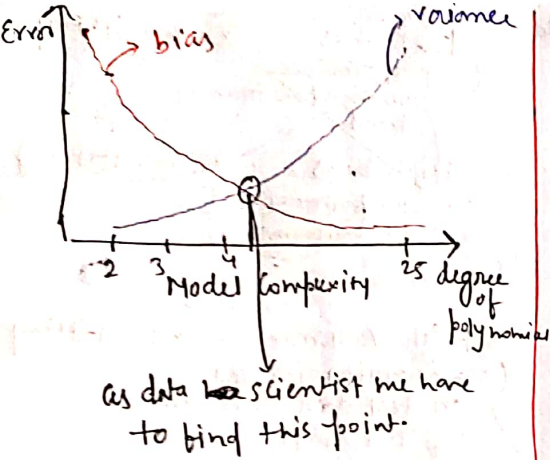 Error
bias
variance
2 3 4 25
Model Compuxity
degree
of
polynomial
as data scientist we have
to find this point.